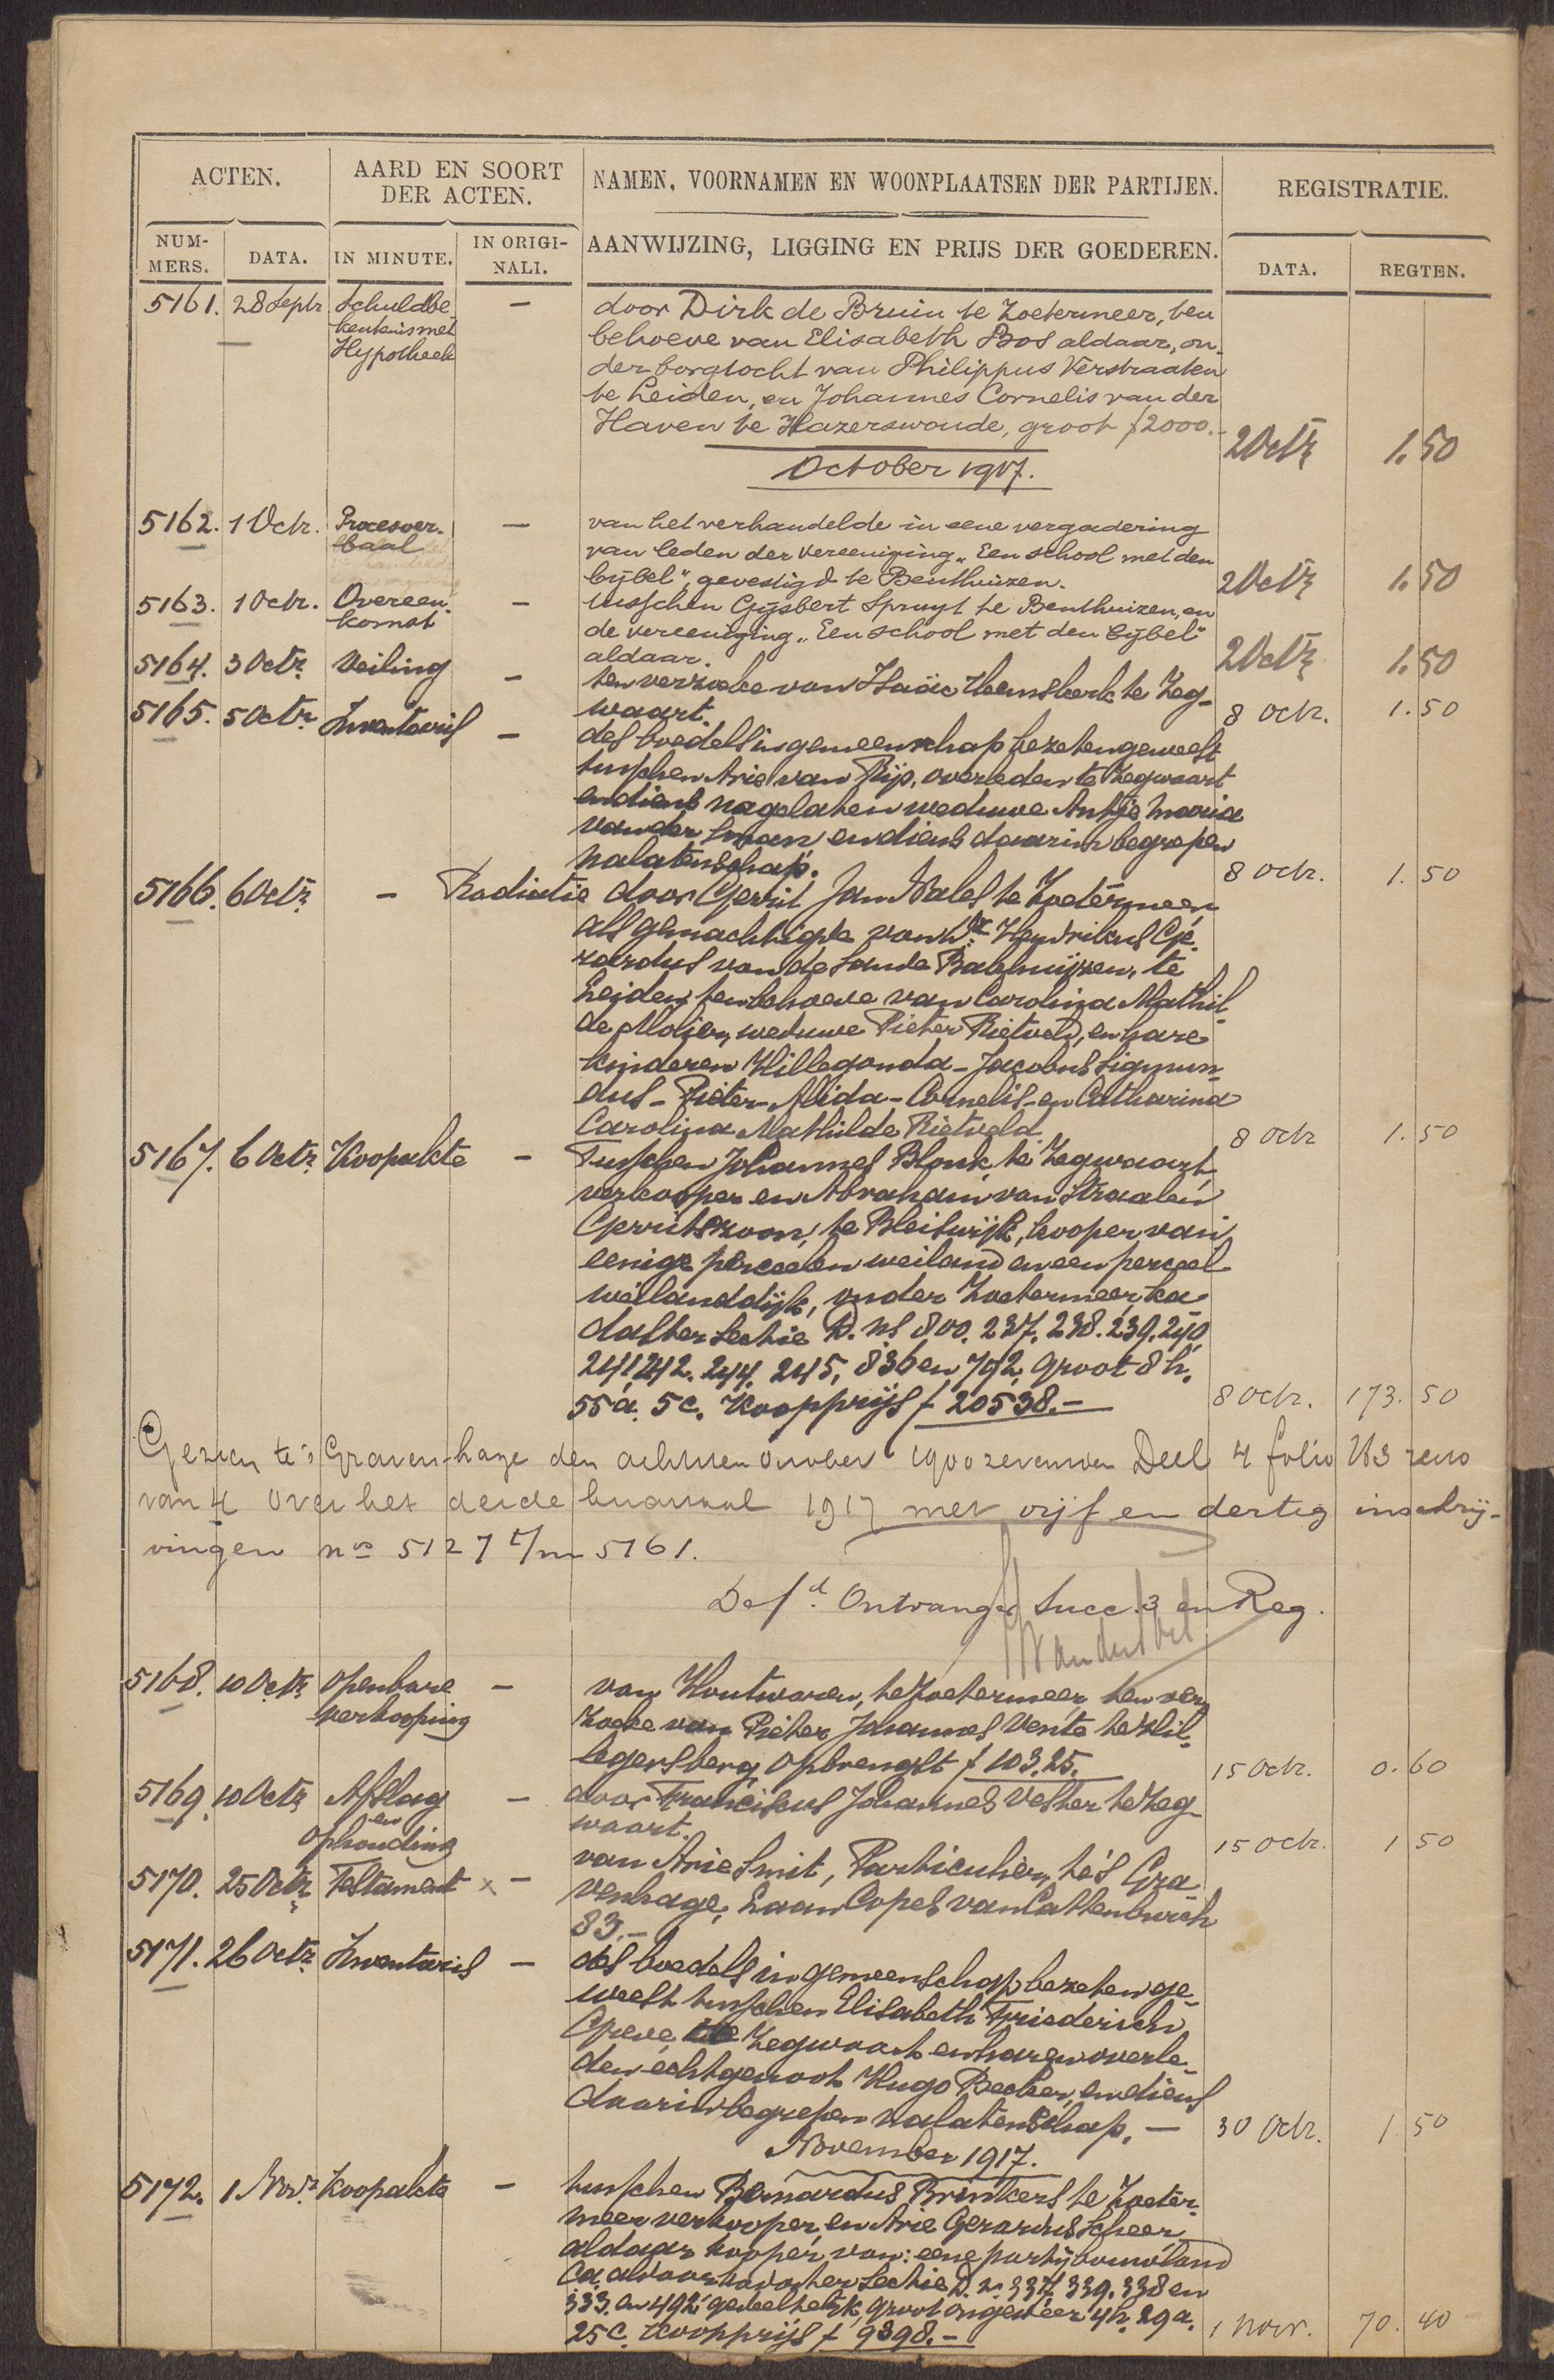 ACTEN.
AARD EN SOORT
DER ACTEN.
NAMEN, VOORNAMEN EN WOONPLAATSEN DER PARTIJEN.
REGISTRATIE.
NUM-
MERS.
DATA.
IN MINUTE.
IN ORIGI-
NALI.
AANWIJZING, LIGGING EN PRIJS DER GOEDEREN.
DATA.
REGTEN.
5161. 28 Septr Schuldbe- — door Dirk de Bruin te Zoetermeer, ten
kentenis met behoeve van Elisabeth Bos aldaar, on-
Hypotheek der borgtocht van Philippus Verstraaten
te Leiden, en Johannes Cornelis van der
Haven te Hazerswoude, groot f 2000.- 2 Octr 1.50
October 1917.
5162. 1 Octr. Procesver- — van het verhandelde in eene vergadering
baal van leden der vereeniging „Een school met den
bijbel", gevestigd te Benthuizen. 2 Octr 1.50
5163. 1 Octr. Overeen- — tusschen Gijsbert Spruyt te Benthuizen, en
komst de vereeniging „Een school met den bijbel"
aldaar. 2 Octr 1.50
5164. 3 Octr. Veiling — ten verzoeke van Isaäc Heemskerk te Zeg-
waart. 8 Octr. 1.50
5165. 5 Octr. Inventaris — des boedels in gemeenschap bezeten geweest
tusschen Arie van Rijp, overleden te Zegwaart
en diens nagelaten weduwe Antje Maria
van der Smaan en diens daarin begrepen
nalatenschap. 8 Octr. 1.50
5166. 6 Octr. — Radiatie door Gerrit Jan Wales te Zoetermeer
als gemachtigde van Dr. Hendrikus Ge-
rardus van de Sande Bakhuijzen, te
Leiden, ten behoeve van Carolina Mathil-
de Molier, weduwe Pieter Rietveld, en hare
kinderen Hillegonda - Jacobus Sigmun-
dus - Pieter - Alida - Cornelis - en Catharina
Carolina Mathilde Rietveld. 8 Octr 1.50
5167. 6 Octr. Koopakte — Tusschen Johannes Blonk, te Zegwaart,
verkooper en Abraham van Straalen
Gerritszoon, te Bleiswijk, kooper van
eenige perceelen weiland en een perceel
weilanddijk, onder Zoetermeer, ka-
daster Sectie D. ns 800. 237. 238. 239. 240
241. 242. 244. 245, 836 en 792, groot 8 h.
55 a. 5 c. Koopprijs f 20538.- 8 Octr. 173.50
Gezien te 's Gravenhage den achtsten October 1900 zeventien Deel 4 folio 183 recto
van 4 over het derde kwartaal 1917 met vijf en dertig inschrij-
vingen nos 5127 t/m 5161.
De fd. Ontvanger Succ. 3 en Reg.
5168. 10 Octr. Openbare — van Houtwaren, te Zoetermeer, ten ver-
verkooping zoeke van Pieter Johannes Vente te Hil-
legersberg, Opbrengst f 103.25. 15 Octr. 0.60
5169. 10 Octr. Afslag — door Franciscus Johannes Vester te Zeg-
en waart.
ophouding 15 Octr. 1 50
5170. 25 Octr. Testament x — van Arie Smit, Particulier, te 's Gra-
venhage, Laan Copes van Cattenburch
83.-
5171. 26 Octr. Inventaris — des boedels in gemeenschap bezeten ge-
weest tusschen Elisabeth Friederich
Greve, te Zegwaart en haren overle-
den echtgenoot Hugo Becker, en diens
daarin begrepen nalatenschap. — 30 Octr. 1.50
November 1917.
5172. 1 Novr. Koopakte — tusschen Bernardus Brinkers te Zoeter-
meer verkooper, en Arie Gerardus Scheer
aldaar kooper van: eene partij bouwland
ca. aldaar kadaster Sectie D. ns. 337. 339. 338 en
333. en 492 gedeeltelijk, groot ongeveer 4 h. 29 a.
25 c. Koopprijs f 9398.- 1 Novr. 70.40